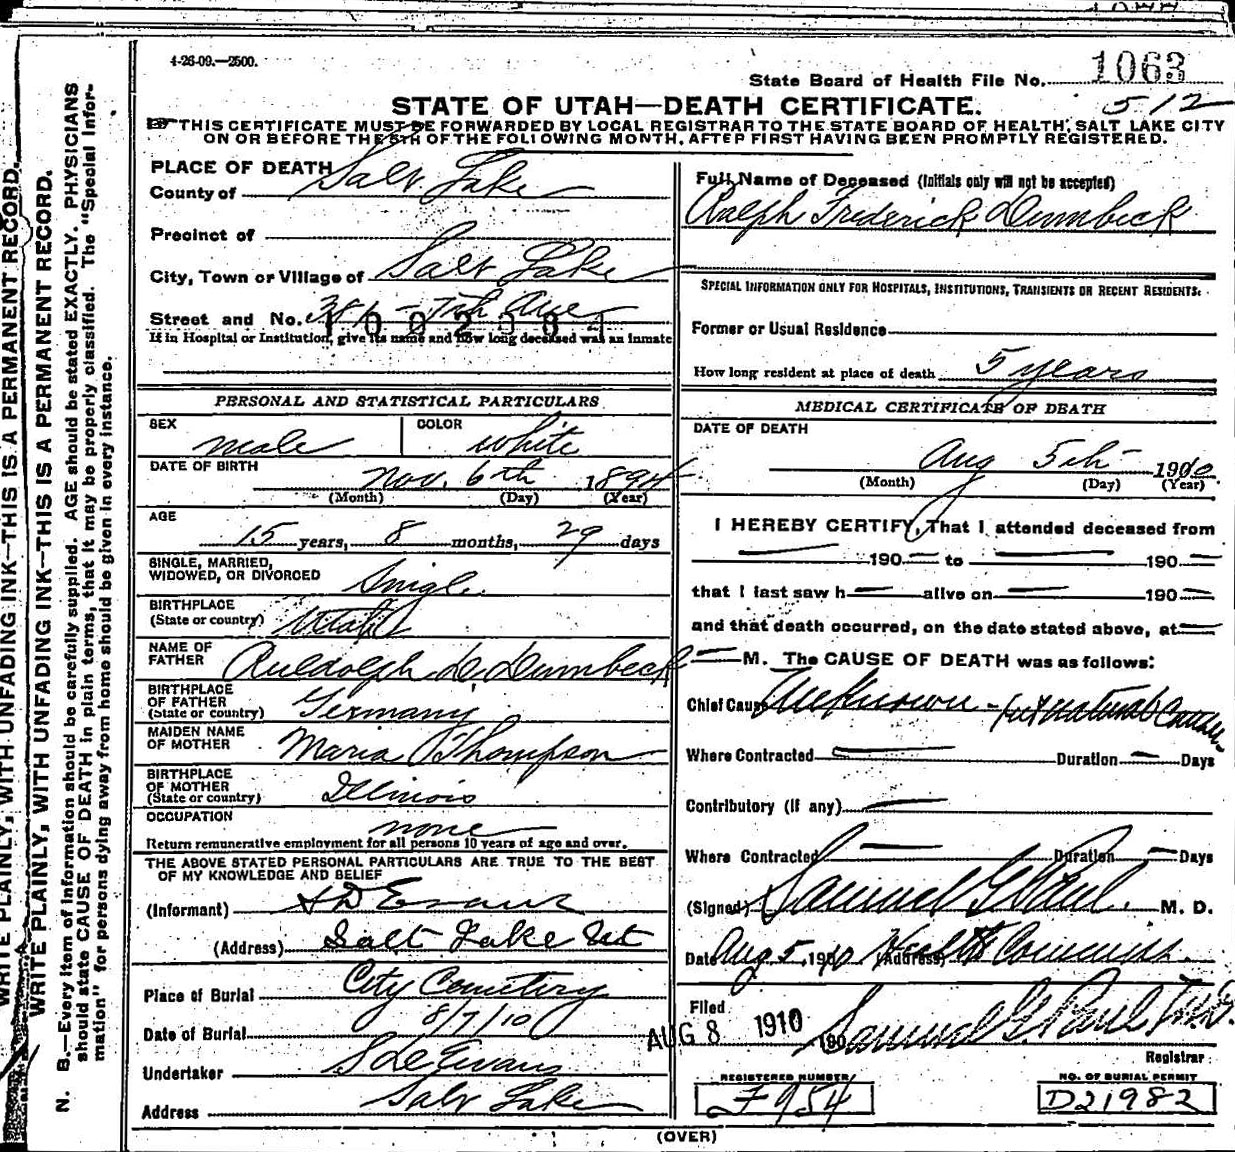 4-26-09.—2500.
State Board of Health File No. 1063
512
STATE OF UTAH—DEATH CERTIFICATE.
THIS CERTIFICATE MUST BE FORWARDED BY LOCAL REGISTRAR TO THE STATE BOARD OF HEALTH, SALT LAKE CITY
ON OR BEFORE THE 5TH OF THE FOLLOWING MONTH, AFTER FIRST HAVING BEEN PROMPTLY REGISTERED.
WRITE PLAINLY, WITH UNFADING INK—THIS IS A PERMANENT RECORD.
WRITE PLAINLY, WITH UNFADING INK—THIS IS A PERMANENT RECORD.
N. B.—Every item of information should be carefully supplied. AGE should be stated EXACTLY. PHYSICIANS
should state CAUSE OF DEATH in plain terms, that it may be properly classified. The "Special Infor-
mation" for persons dying away from home should be given in every instance.
PLACE OF DEATH
County of Salt Lake
Precinct of
City, Town or Village of Salt Lake
Street and No. 381 - 7th Ave
1002084
If in Hospital or Institution, give its name and how long deceased was an inmate
PERSONAL AND STATISTICAL PARTICULARS
SEX male COLOR white
DATE OF BIRTH Nov. 6th 1894
(Month) (Day) (Year)
AGE
15 years, 8 months, 29 days
SINGLE, MARRIED,
WIDOWED, OR DIVORCED Single
BIRTHPLACE
(State or country) Utah
NAME OF
FATHER Ruldolph D. Dumbeck
BIRTHPLACE
OF FATHER
(State or country) Germany
MAIDEN NAME
OF MOTHER Maria Thompson
BIRTHPLACE
OF MOTHER
(State or country) Illinois
OCCUPATION none
Return remunerative employment for all persons 10 years of age and over.
THE ABOVE STATED PERSONAL PARTICULARS ARE TRUE TO THE BEST
OF MY KNOWLEDGE AND BELIEF
(Informant) S D Evans
(Address) Salt Lake Ut
Place of Burial City Cemetery
Date of Burial 8/7/10
Undertaker S D Evans
Address Salt Lake
Full Name of Deceased (Initials only will not be accepted)
Ralph Frederick Dumbeck
SPECIAL INFORMATION ONLY FOR HOSPITALS, INSTITUTIONS, TRANSIENTS OR RECENT RESIDENTS.
Former or Usual Residence
How long resident at place of death 5 years
MEDICAL CERTIFICATE OF DEATH
DATE OF DEATH
Aug 5th 1910
(Month) (Day) (Year)
I HEREBY CERTIFY, That I attended deceased from
190 to 190
that I last saw h alive on 190
and that death occurred, on the date stated above, at
M. The CAUSE OF DEATH was as follows:
Chief Cause Unknown - but natural causes
Where Contracted Duration Days
Contributory (if any)
Where Contracted Duration Days
(Signed) Samuel G. Paul. M. D.
Date Aug 5, 1910 (Address) Health Commiss.
Filed
AUG 8 1910 190 Samuel G. Paul M.D.
Registrar
REGISTERED NUMBER
F 954
NO. OF BURIAL PERMIT
D21982
(OVER)